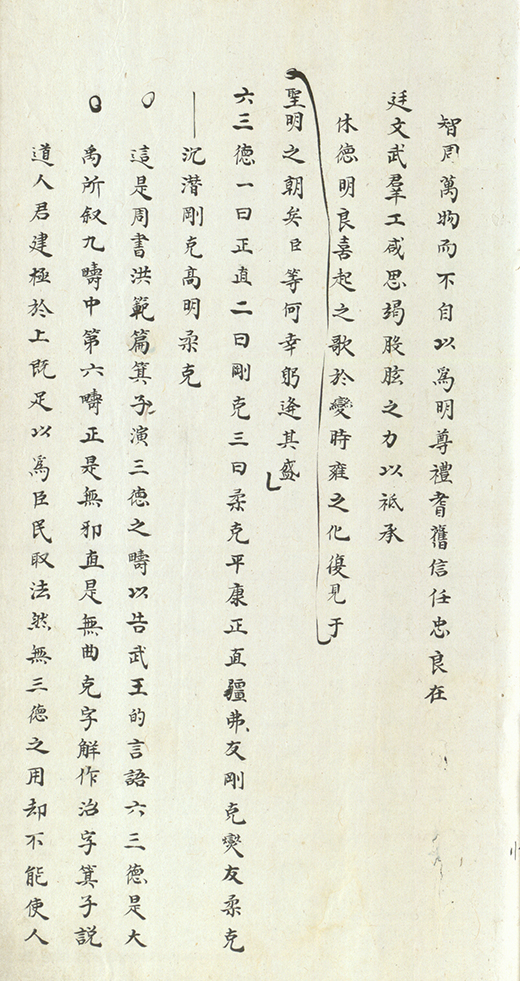 智周萬物而不自以為明尊禮耆舊信任忠良在
廷文武羣工咸思竭股肱之力以祗承
休德明良喜起之歌於變時雍之化復見于
聖明之朝矣臣等何幸躬逢其盛
六三德一曰正直二曰剛克三曰柔克平康正直彊弗友剛克燮友柔克
沉潛剛克高明柔克
這是周書洪範篇箕子演三德之疇以告武王的言語六三德是大
禹所叙九疇中第六疇正是無邪直是無曲克字解作治字箕子說
道人君建極於上既足以為臣民取法然無三德之用却不能使人